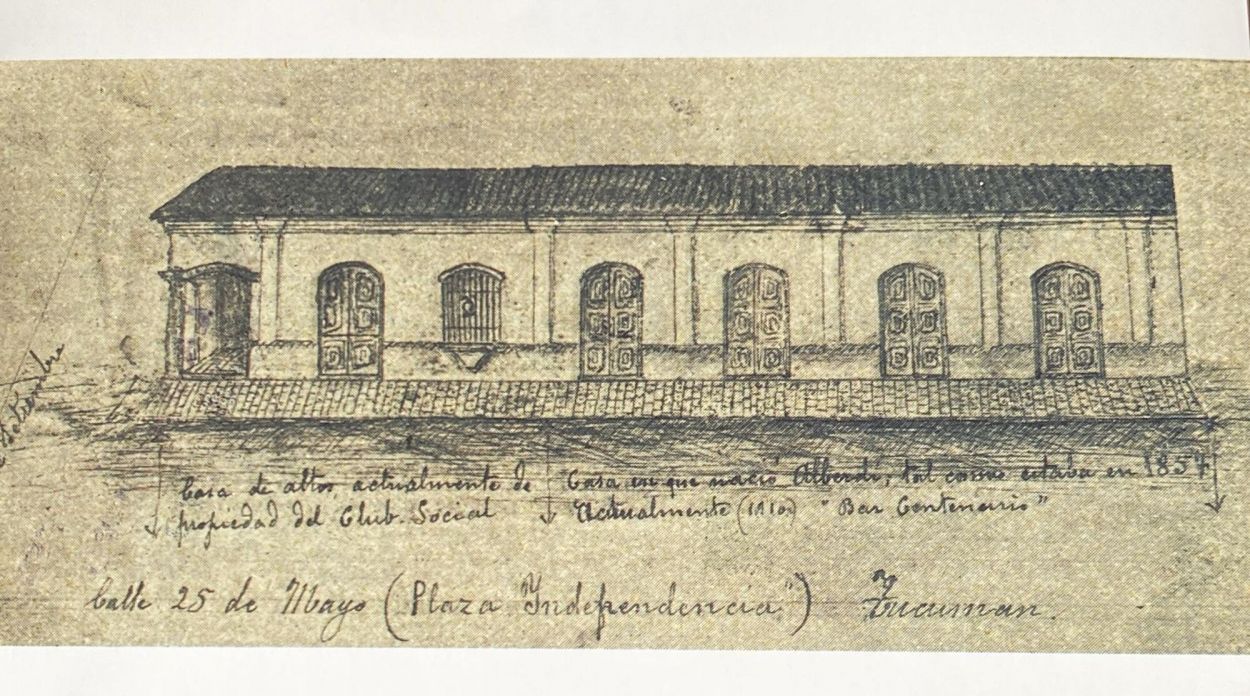 Setiembre
Casa de altos actualmente de
propiedad del Club Social
Casa en que nació Alberdi, tal como estaba en 1857
Actualmente (1910) "Bar Centenario"
Calle 25 de Mayo (Plaza Independencia) Tucuman.